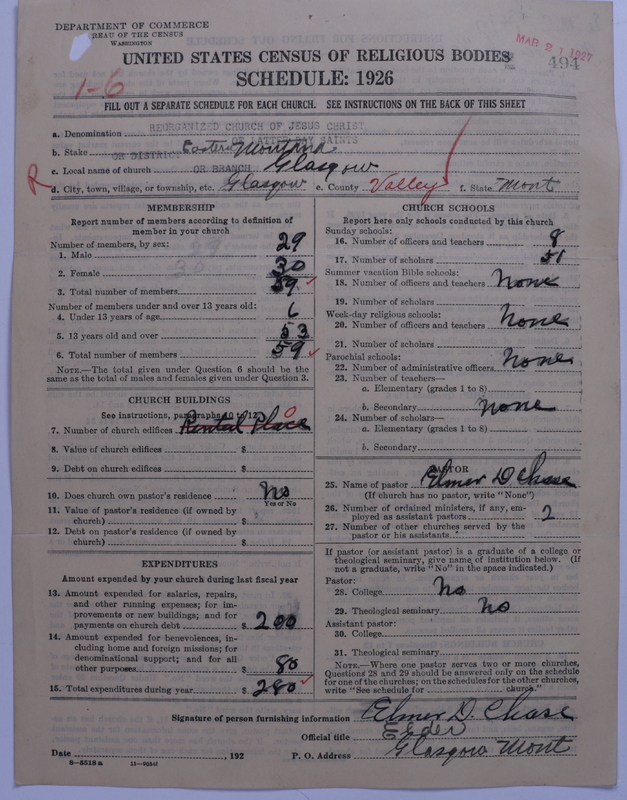 DEPARTMENT OF COMMERCE
REAU OF THE CENSUS
WASHINGTON
MAR 21 1927
494
UNITED STATES CENSUS OF RELIGIOUS BODIES
SCHEDULE: 1926
1-6
FILL OUT A SEPARATE SCHEDULE FOR EACH CHURCH. SEE INSTRUCTIONS ON THE BACK OF THIS SHEET
a. Denomination REORGANIZED CHURCH OF JESUS CHRIST
OF LATTER DAY SAINTS
b. Stake OR DISTRICT Eastern Montana
c. Local name of church OR BRANCH Glasgow
R
d. City, town, village, or township, etc. Glasgow e. County Valley f. State Mont
MEMBERSHIP
Report number of members according to definition of
member in your church
Number of members, by sex:
1. Male 29
2. Female 30
3. Total number of members 59
Number of members under and over 13 years old:
4. Under 13 years of age 6
5. 13 years old and over 53
6. Total number of members 59
NOTE.—The total given under Question 6 should be
same as the total of males and females given under Question 3.
CHURCH BUILDINGS
See instructions, paragraphs 10 to 12
7. Number of church edifices Rental Place 0
8. Value of church edifices $
9. Debt on church edifices $
10. Does church own pastor's residence No
Yes or No
11. Value of pastor's residence (if owned by
church) $
12. Debt on pastor's residence (if owned by
church) $
EXPENDITURES
Amount expended by your church during last fiscal year
13. Amount expended for salaries, repairs,
and other running expenses; for im-
provements or new buildings; and for
payments on church debt $ 200
14. Amount expended for benevolences, in-
cluding home and foreign missions; for
denominational support; and for all
other purposes $ 80
15. Total expenditures during year $ 280
CHURCH SCHOOLS
Report here only schools conducted by this church
Sunday schools:
16. Number of officers and teachers 8
17. Number of scholars 51
Summer vacation Bible schools:
18. Number of officers and teachers None
19. Number of scholars
Week-day religious schools:
20. Number of officers and teachers None
21. Number of scholars
Parochial schools:
22. Number of administrative officers None
23. Number of teachers—
a. Elementary (grades 1 to 8)
b. Secondary None
24. Number of scholars—
a. Elementary (grades 1 to 8)
b. Secondary
PASTOR
25. Name of pastor Elmer D Chase
(If church has no pastor, write "None")
26. Number of ordained ministers, if any, em-
ployed as assistant pastors 2
27. Number of other churches served by the
pastor or his assistants
If pastor (or assistant pastor) is a graduate of a college or
theological seminary, give name of institution below. (If
not a graduate, write "No" in the space indicated.)
Pastor:
28. College No
29. Theological seminary No
Assistant pastor:
30. College
31. Theological seminary
NOTE.—Where one pastor serves two or more churches,
Questions 28 and 29 should be answered only on the schedule
for one of the churches; on the schedules for the other churches,
write "See schedule for church."
Signature of person furnishing information Elmer D. Chase
Official title Elder
Date , 192 P. O. Address Glasgow Mont
8—5518 a